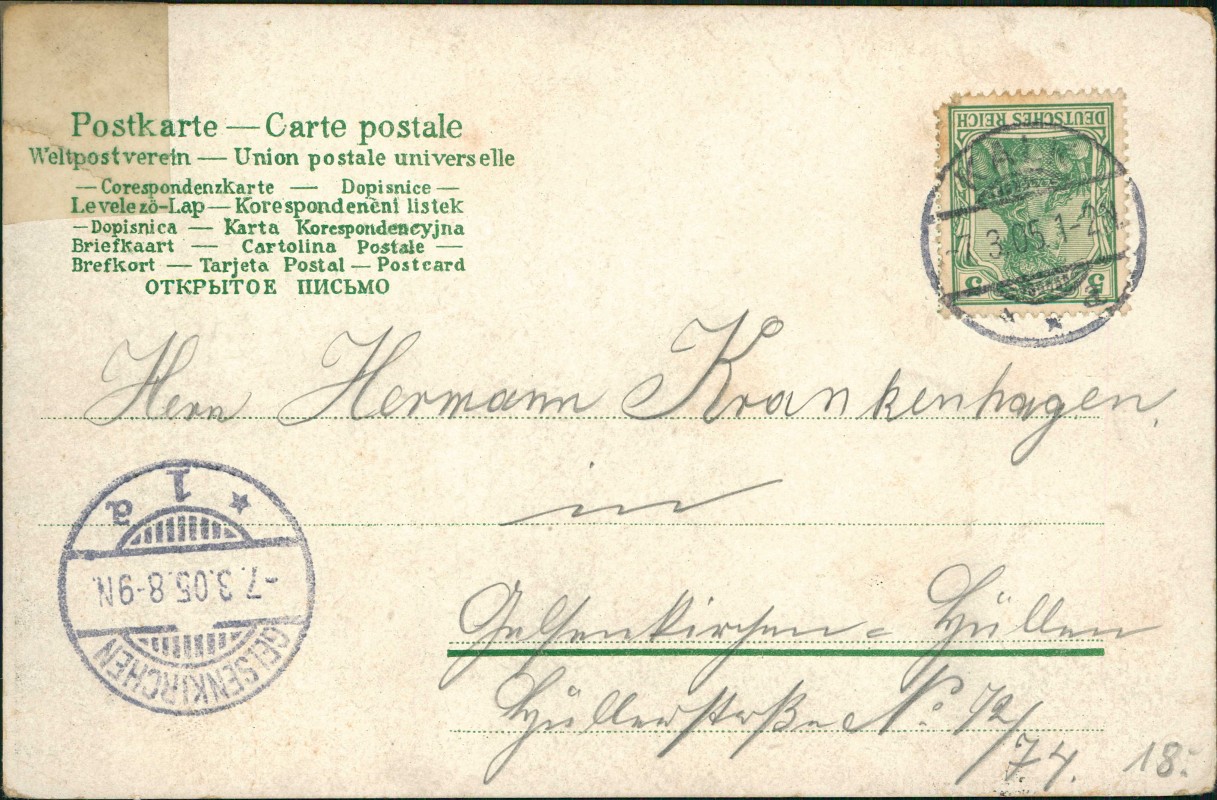 Postkarte — Carte postale
Weltpostverein — Union postale universelle
— Corespondenzkarte — Dopisnice —
Levelező-Lap — Korespondenèni listek
— Dopisnica — Karta Korespondencyjna
Briefkaart — Cartolina Postale —
Brefkort — Tarjeta Postal — Postcard
ОТКРЫТОЕ ПИСЬМО
DEUTSCHES REICH
5 5
-7.3.05.1-2N.
a
Herrn Hermann Krankenhagen,
in
Gelsenkirchen = Hüllen
Hüllerstraße No. 72/
74.
18.
GELSENKIRCHEN
-7.3.05.8-9N.
1 a